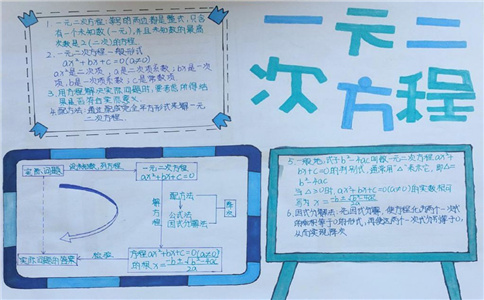 一元二
次方程
1.一元二次方程:等号两边都是整式,只含
有一个未知数(一元),并且未知数的最高
次数是2(二次)的方程
2.一元二次方程一般形式
ax²+bx+c=0(a≠0)
ax²是二次项,a是二次项系数;bx是一次
项,b是一次项系数;c是常数项
3.用方程解决实际问题时,要考虑所得结
果是否符合实际意义
4.配方法:通过配成完全平方形式来解一元
二次方程
实际问题 设未知数,列方程 一元二次方程
ax²+bx+c=0
解方程
配方法
公式法
因式分解法
降次
实际问题的答案 检验 方程ax²+bx+c=0(a≠0)
的根x=(-b±√b²-4ac)/2a
5.一般地,式子b²-4ac叫做一元二次方程ax²+
bx+c=0的判别式,通常用"△"表示它,即△=
b²-4ac
当△≥0时,ax²+bx+c=0(a≠0)的实数根可
写为x=(-b±√b²-4ac)/2a
6.因式分解法:先因式分解,使方程化为两个一次式
的乘积等于0的形式,再使这两个一次式分别等于0,
从而实现降次